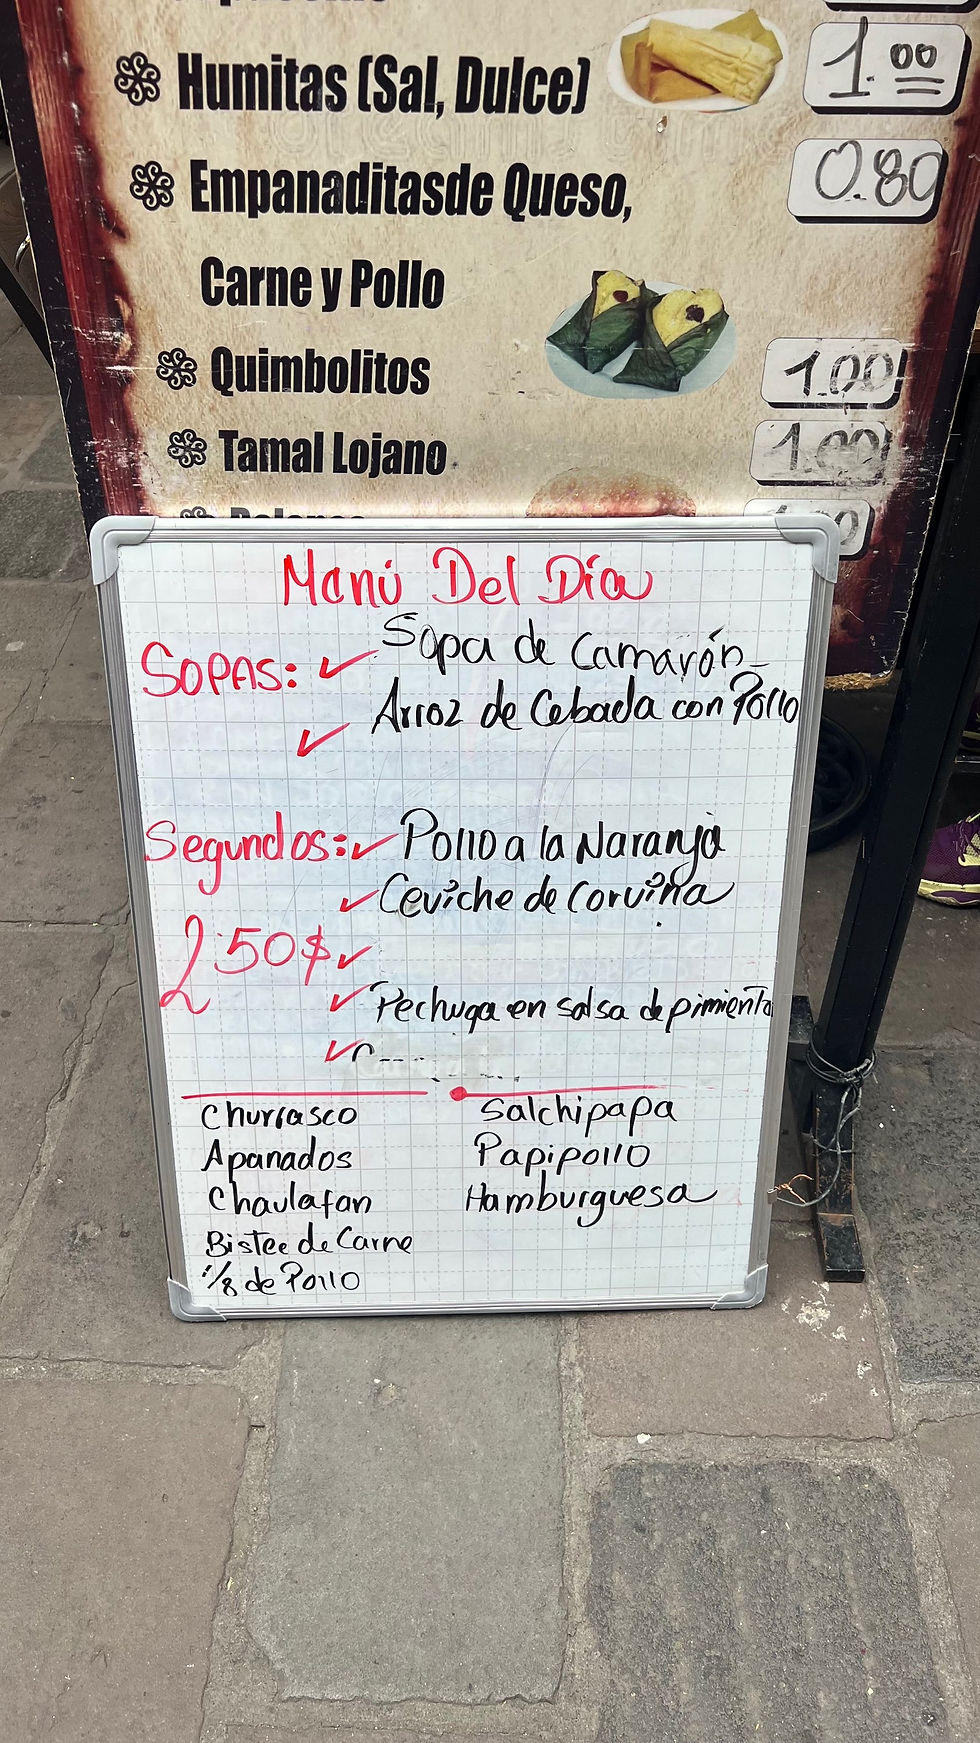 Humitas (Sal, Dulce) 1.00
Empanaditasde Queso, 0.80
Carne y Pollo
Quimbolitos 1.00
Tamal Lojano 1.00
Menú Del Día
SOPAS: ✓ Sopa de Camarón
✓ Arroz de Cebada con Pollo
Segundos: ✓ Pollo a la Naranja
✓ Ceviche de Corvina
2.50$ ✓
✓ Pechuga en salsa de pimienta
✓
Churrasco
Apanados
Chaulafan
Bistec de Carne
1/8 de Pollo
Salchipapa
Papipollo
Hamburguesa